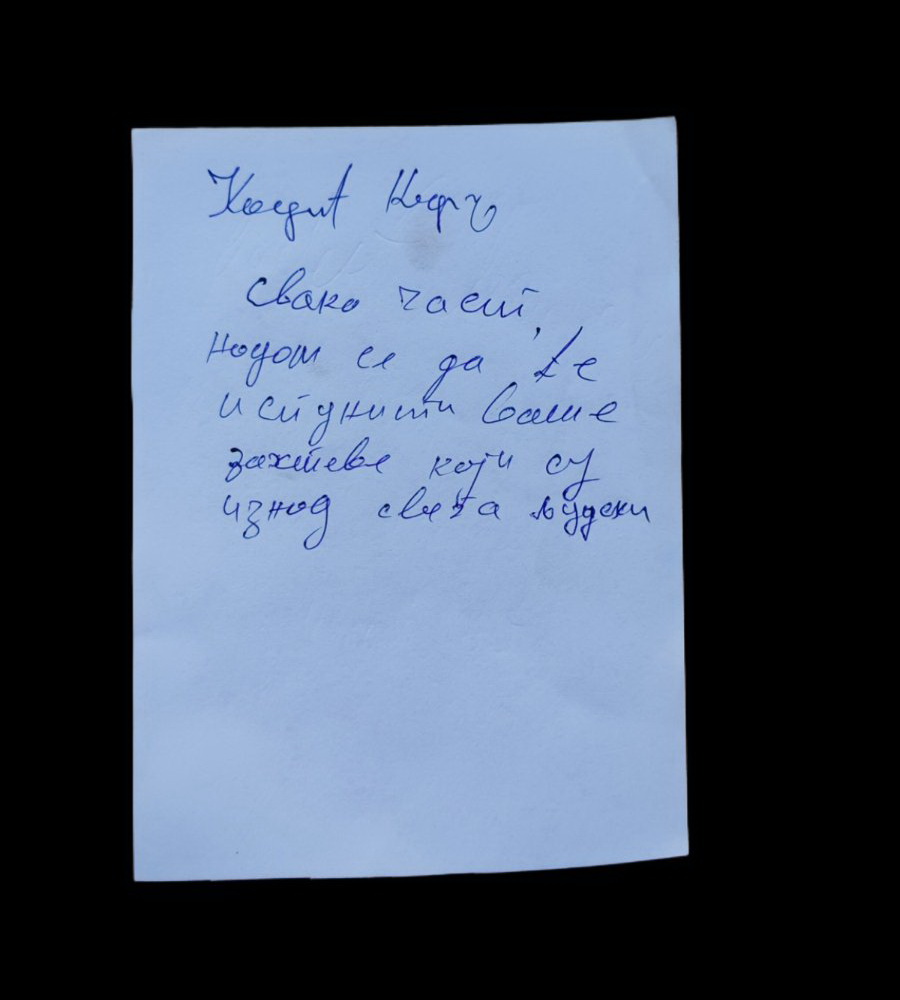 Свака част,
Надам се да ће
испунити ваше
захтеве који су
изнад свега људски